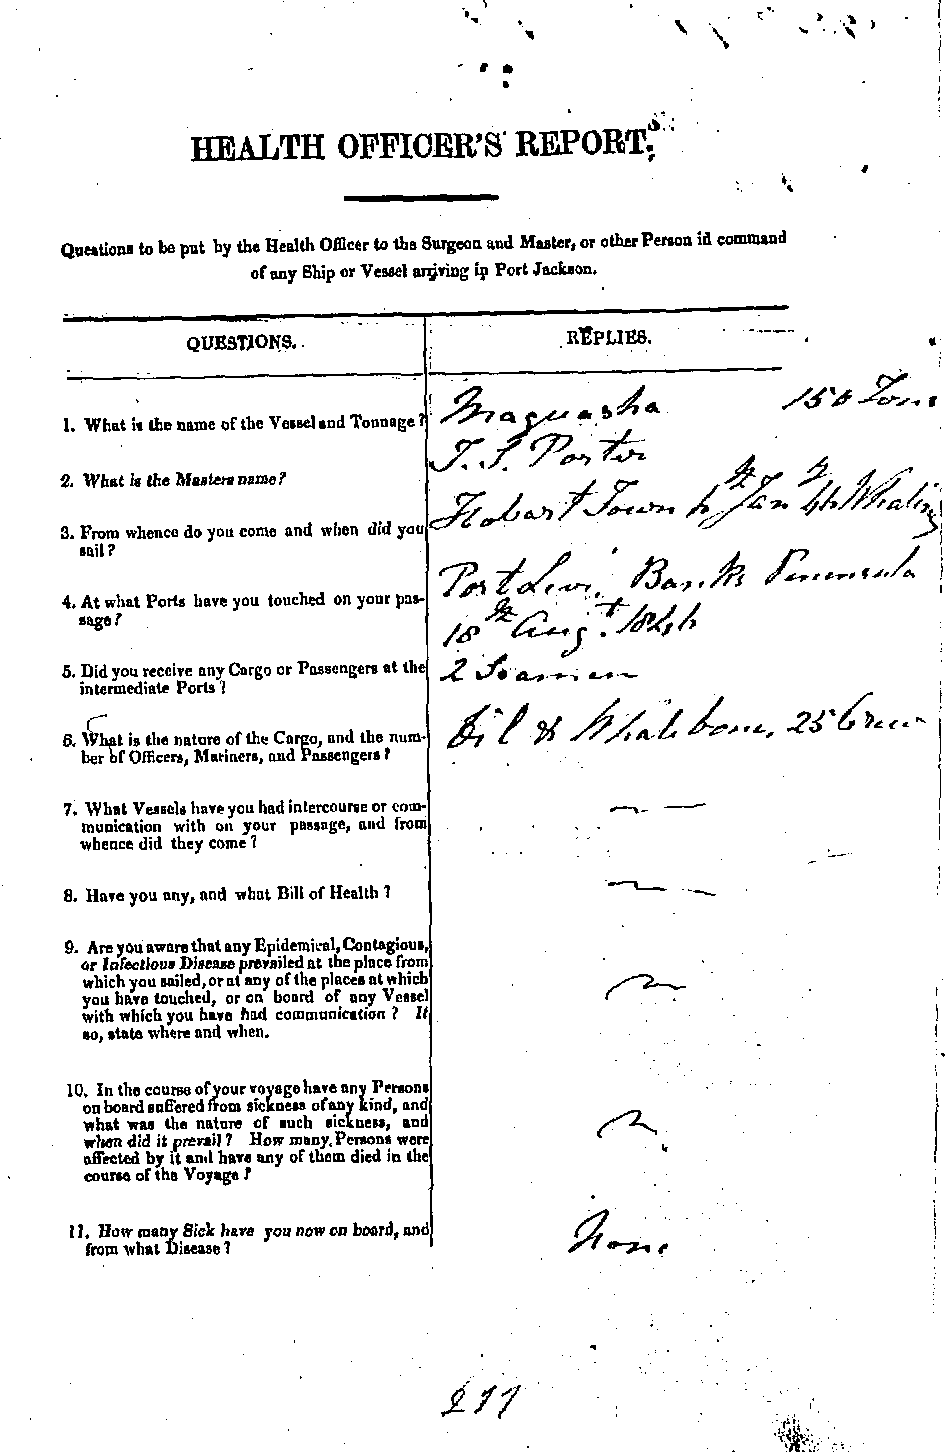 HEALTH OFFICER'S REPORT.
Questions to be put by the Health Officer to the Surgeon and Master, or other Person in command
of any Ship or Vessel arriving in Port Jackson.
QUESTIONS.
REPLIES.
1. What is the name of the Vessel and Tonnage?
Maguasha 150 Tons
2. What is the Masters name?
T. S. Porter
3. From whence do you come and when did you
sail?
Hobart Town Jany Whaling
4. At what Ports have you touched on your pas-
sage?
Port Levi, Banks Peninsula
18th Augt. 1846
5. Did you receive any Cargo or Passengers at the
intermediate Ports?
2 Seamen
6. What is the nature of the Cargo, and the num-
ber of Officers, Mariners, and Passengers?
Oil & Whalebone, 25 Crew
7. What Vessels have you had intercourse or com-
munication with on your passage, and from
whence did they come?
8. Have you any, and what Bill of Health?
9. Are you aware that any Epidemical, Contagious,
or Infectious Disease prevailed at the place from
which you sailed, or at any of the places at which
you have touched, or on board of any Vessel
with which you have had communication? If
so, state where and when.
10. In the course of your voyage have any Persons
on board suffered from sickness of any kind, and
what was the nature of such sickness, and
when did it prevail? How many Persons were
affected by it and have any of them died in the
course of the Voyage?
11. How many Sick have you now on board, and
from what Disease?
None
277